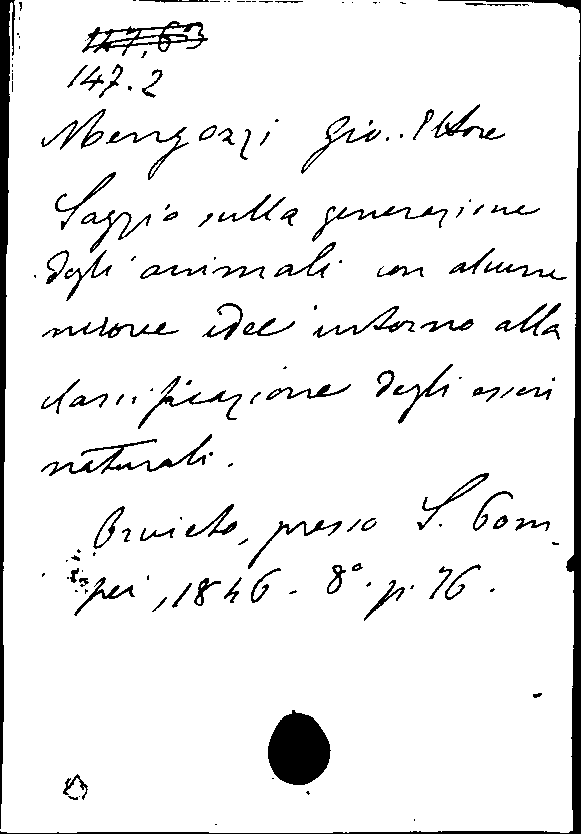 147.63
147.2
Mengozzi Gio. Ettore
Saggio sulla generazione
degli animali con alcune
nuove idee intorno alla
classificazione degli esseri
naturali.
Orvieto, presso S. Pom-
pei, 1846. 8° p. 76.